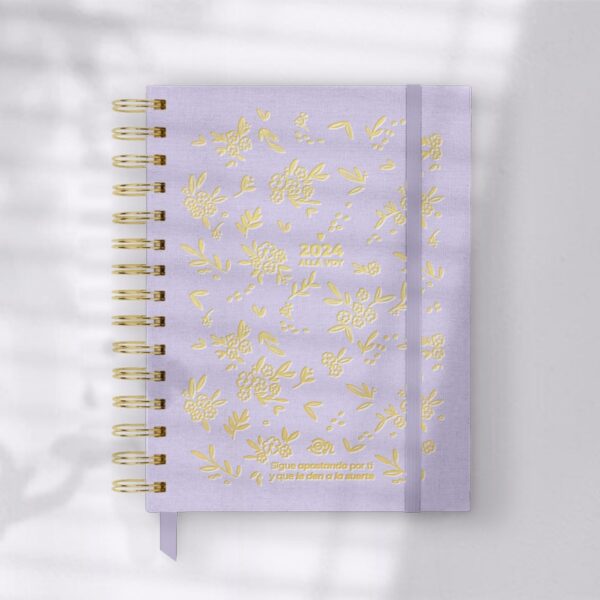 2024
ALLÁ VOY
Sigue apostando por ti
y que le den a la suerte